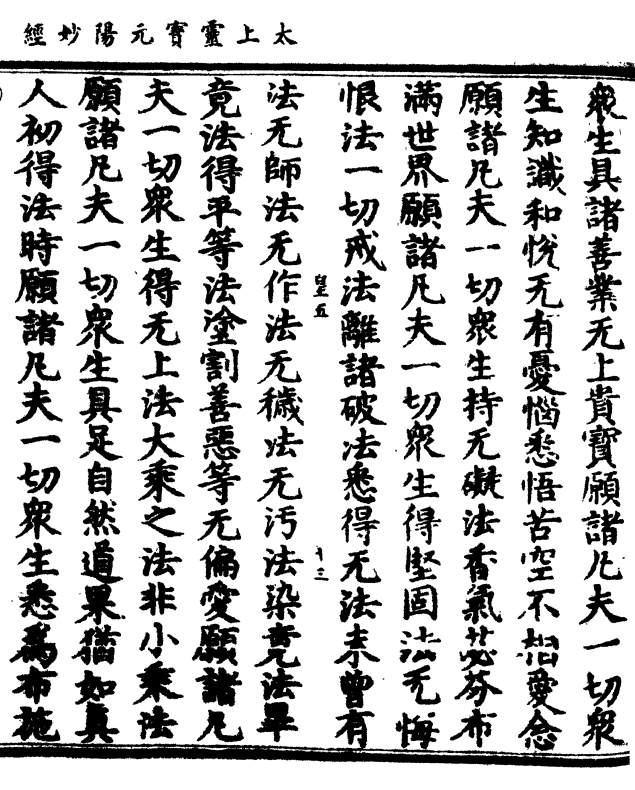 太上靈寶元陽妙經
衆生具諸善業无上貴寶願諸凡夫一切衆
生知識和悅无有憂惱悉悟苦空不起愛念
願諸凡夫一切衆生持无礙法香氣苾芬布
滿世界願諸凡夫一切衆生得堅固法无悔
恨法一切戒法離諸破法悉得无法未曾有
皇五
十三
法无師法无作法无穢法无污法染竟法畢
竟法得平等法塗割善惡等无偏愛願諸凡
夫一切衆生得无上法大乘之法非小乘法
願諸凡夫一切衆生具足自然道果猶如真
人初得法時願諸凡夫一切衆生悉爲布施